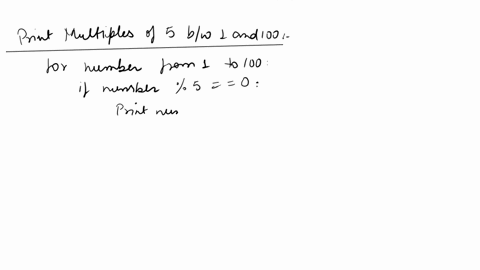 Print Multiples of 5 b/w 1 and 100:-
for number from 1 to 100:
if number % 5 == 0:
Print num